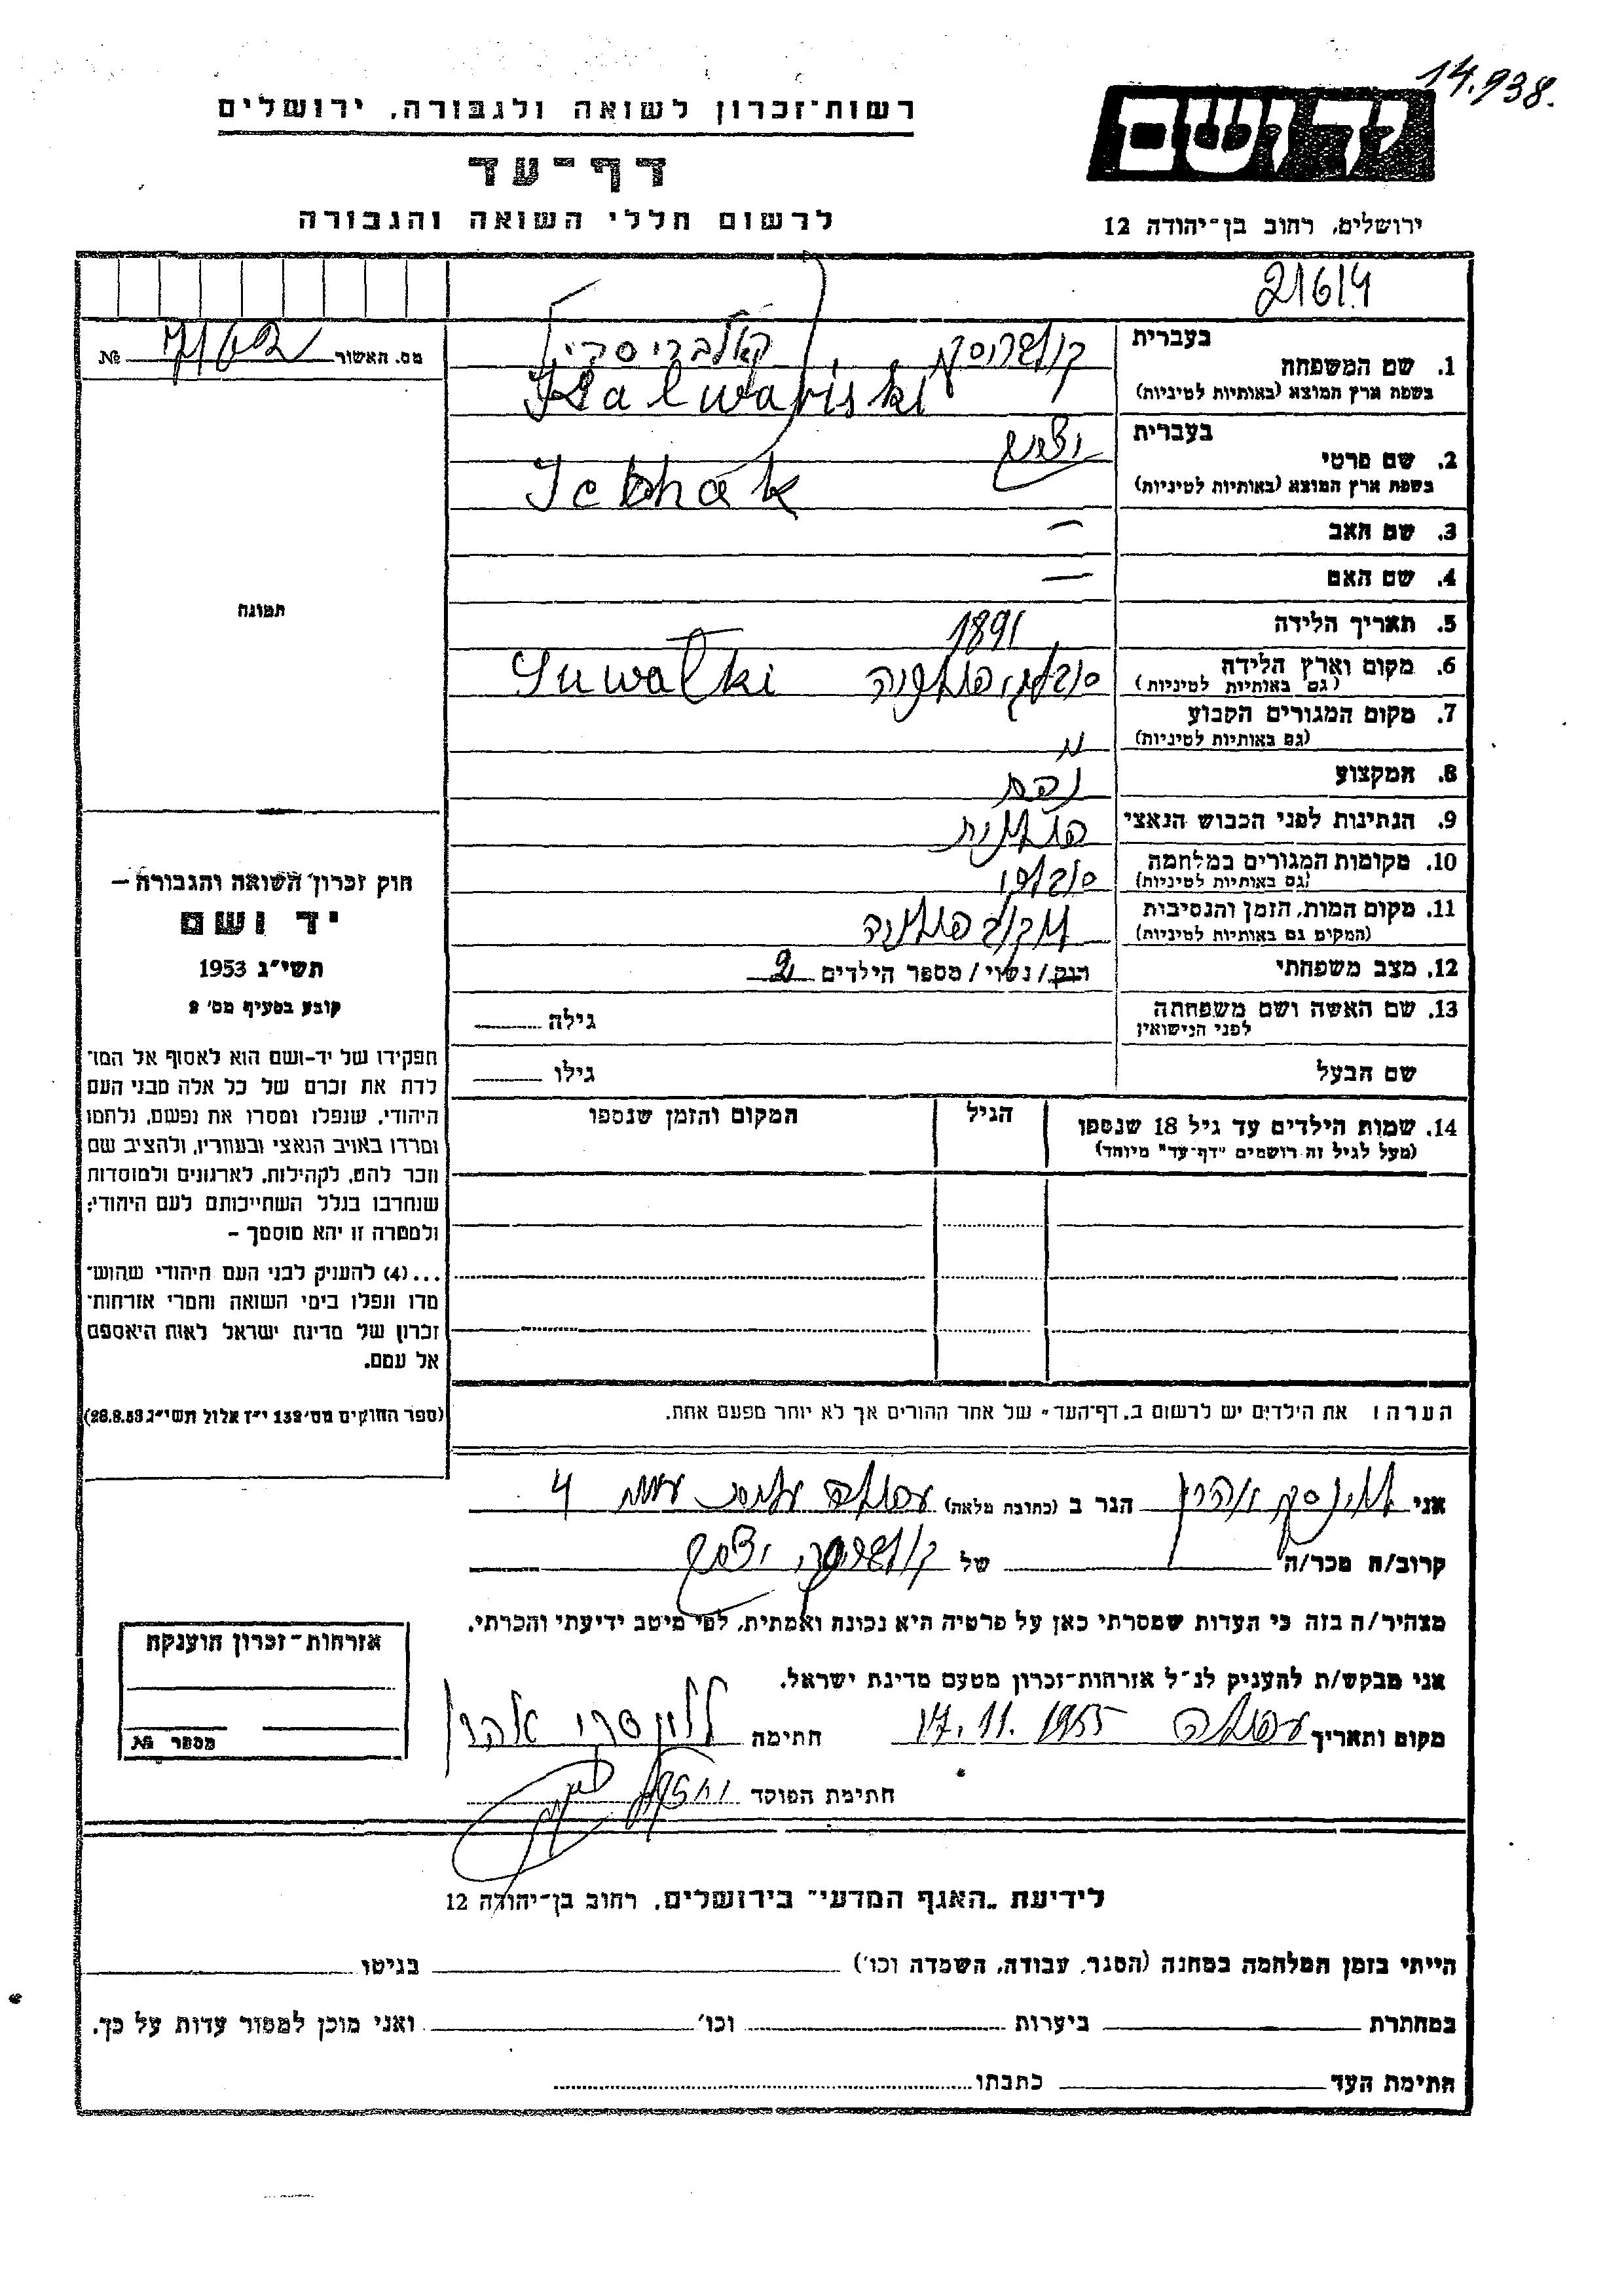 14.938.
רשות־זכרון לשואה ולגבורה, ירושלים
דף־עד
לרשום חללי השואה והגבורה
יד ושם
ירושלים, רחוב בן־יהודה 12
21614
מס. האשור №
בעברית
1. שם המשפחה
בשפת ארץ המוצא (באותיות לטיניות)
קאלבריסקי
Kalwariski
בעברית
2. שם פרטי
בשפת ארץ המוצא (באותיות לטיניות)
יצחק
Ichak
3. שם האב —
4. שם האם —
5. תאריך הלידה 1891
6. מקום וארץ הלידה
(גם באותיות לטיניות)
Suwalki
7. מקום המגורים הקבוע
(גם באותיות לטיניות)
8. המקצוע
נהג
9. הנתינות לפני הכבוש הנאצי
פולנית
10. מקומות המגורים במלחמה
(גם באותיות לטיניות)
11. מקום המות, הזמן והנסיבות
(המקום גם באותיות לטיניות)
12. מצב משפחתי
רווק/נשוי/מספר הילדים 2
13. שם האשה ושם משפחתה
לפני הנישואין
גילה
שם הבעל
גילו
14. שמות הילדים עד גיל 18 שנספו
(מעל לגיל זה רושמים "דף־עד" מיוחד)
הגיל
המקום והזמן שנספו
תמונה
חוק זכרון השואה והגבורה —
יד ושם
תשי"ג 1953
קובע בסעיף מס' 2
תפקידו של יד-ושם הוא לאסוף אל המו־
לדת את זכרם של כל אלה מבני העם
היהודי, שנפלו ומסרו את נפשם, נלחמו
ומרדו באויב הנאצי ובעוזריו, ולהציב שם
וזכר להם, לקהילות, לארגונים ולמוסדות
שנחרבו בגלל השתייכותם לעם היהודי;
ולמטרה זו יהא מוסמך —
...(4) להעניק לבני העם היהודי שהוש־
מדו ונפלו בימי השואה והמרי אזרחות־
זכרון של מדינת ישראל לאות היאספם
אל עמם.
(ספר החוקים מס' 132 י"ז אלול תשי"ג 28.8.53)
הערה: את הילדים יש לרשום ב„דף־העד" של אחד ההורים אך לא יותר מפעם אחת.
אני הגר ב (כתובת מלאה) עפולה 4
קרוב/ה מכר/ה של יצחק
מצהיר/ה בזה כי העדות שמסרתי כאן על פרטיה היא נכונה ואמתית, לפי מיטב ידיעתי והכרתי.
אני מבקש/ת להעניק לנ"ל אזרחות־זכרון מטעם מדינת ישראל.
מקום ותאריך עפולה 17.11.1955 חתימה
חתימת הפוקד
אזרחות־זכרון הוענקה
מספר №
לידיעת „האגף המדעי" בירושלים, רחוב בן־יהודה 12
הייתי בזמן המלחמה במחנה (הסגר, עבודה, השמדה וכו') בגיטו
במחתרת ביערות וכו' ואני מוכן למסור עדות על כך.
חתימת העד כתבתו